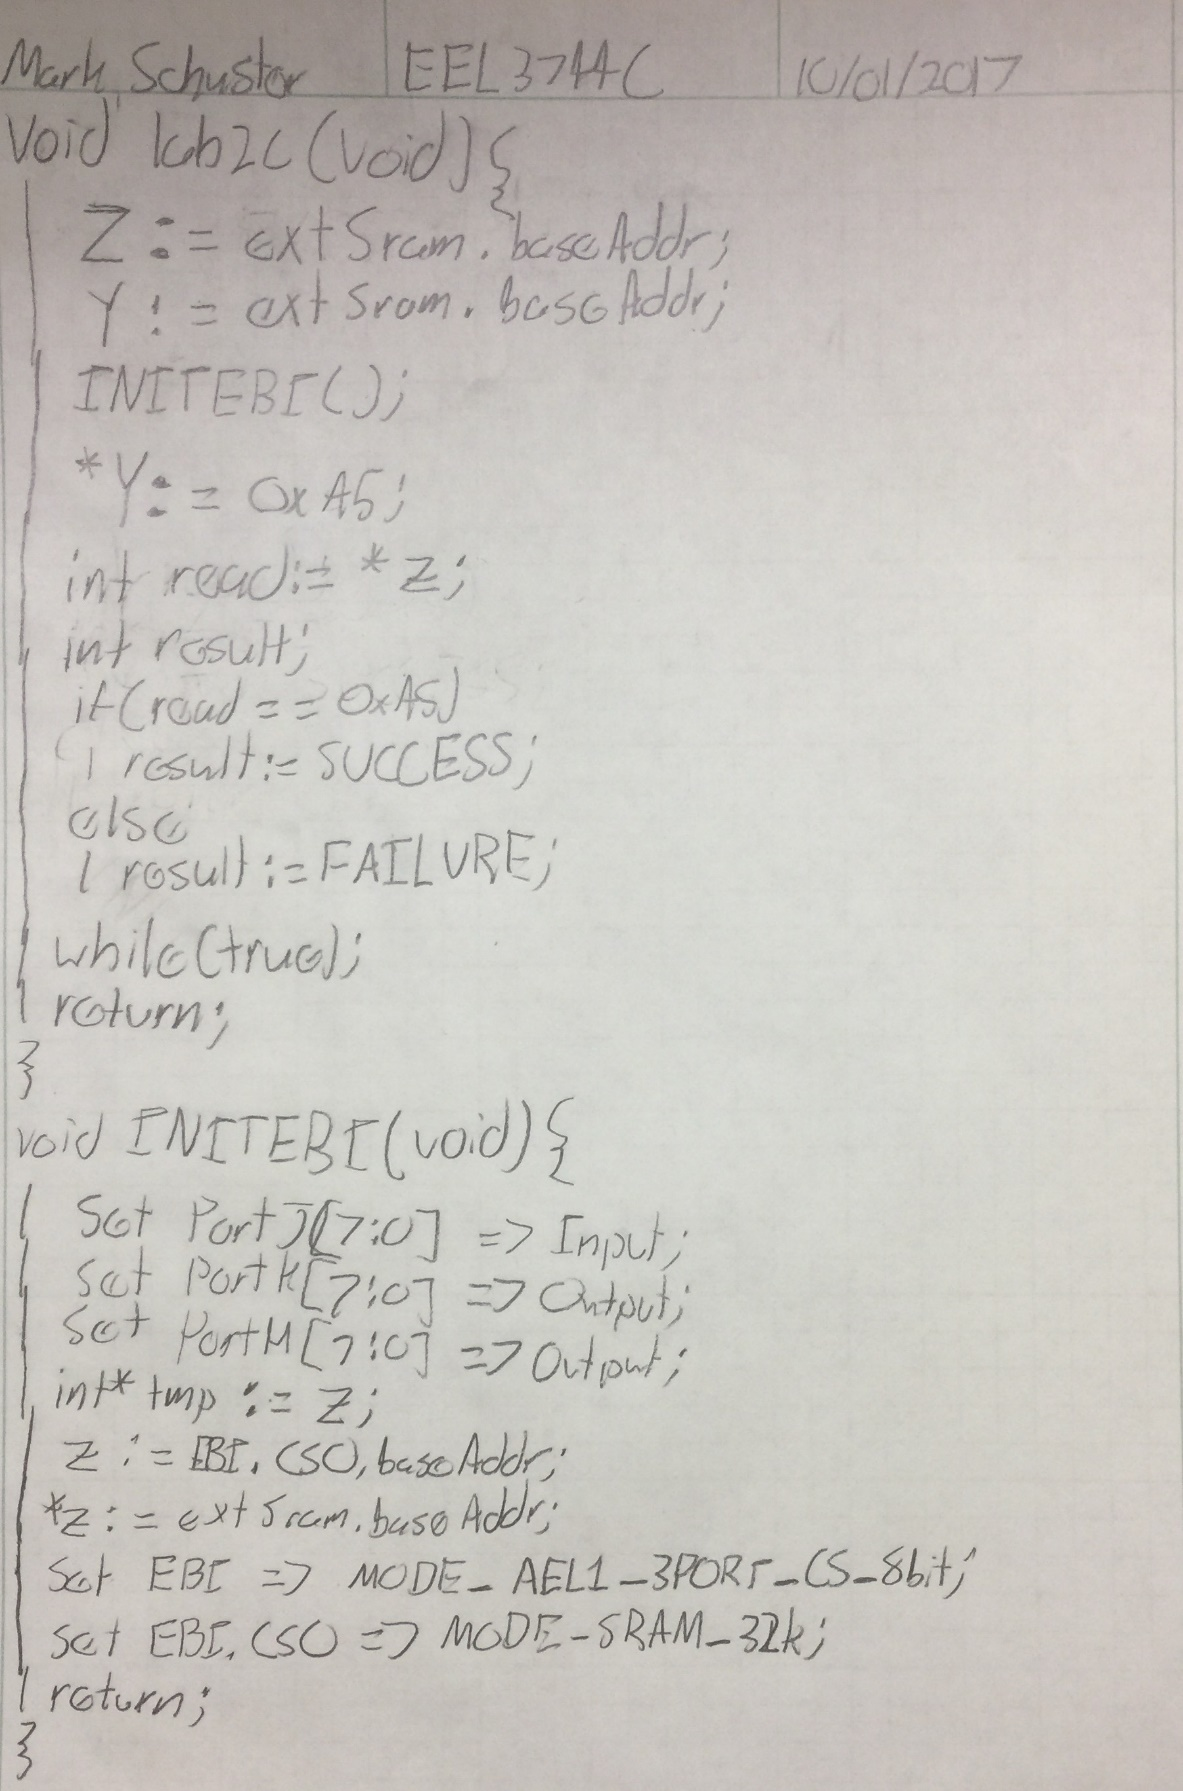 Mark Schuster EEL3744C 10/01/2017
void lab2c(void){
Z := extSram.baseAddr;
Y := extSram.baseAddr;
INITEBI();
*Y := 0xA5;
int read := *Z;
int result;
if(read == 0xA5)
result := SUCCESS;
else
result := FAILURE;
while(true);
return;
}
void INITEBI(void){
Set PortJ[7:0] => Input;
Set PortK[7:0] => Output;
Set PortH[7:0] => Output;
int* tmp := Z;
Z := EBI.CS0.baseAddr;
*Z := extSram.baseAddr;
Set EBI => MODE_AEL1_3PORT_CS_8bit;
set EBI.CS0 => MODE_SRAM_32k;
return;
}